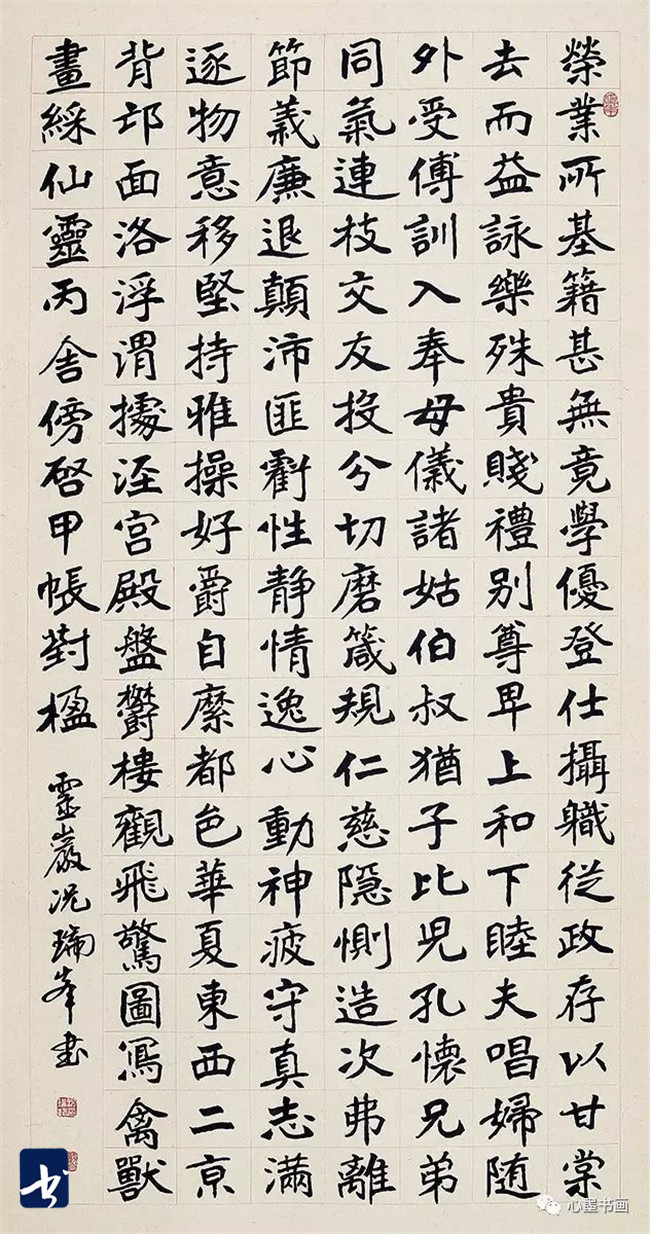 榮業所基籍甚無竟學優登仕攝職從政存以甘棠
去而益詠樂殊貴賤禮别尊卑上和下睦夫唱婦随
外受傅訓入奉母儀諸姑伯叔猶子比兒孔懷兄弟
同氣連枝交友投分切磨箴規仁慈隱惻造次弗離
節義廉退顛沛匪虧性静情逸心動神疲守真志滿
逐物意移堅持雅操好爵自縻都邑華夏東西二京
背邙面洛浮渭據涇宮殿盤鬱樓觀飛驚圖寫禽獸
畫綵仙靈丙舍傍啓甲帳對楹
靈巖况瑞峯書
书
心墨书画